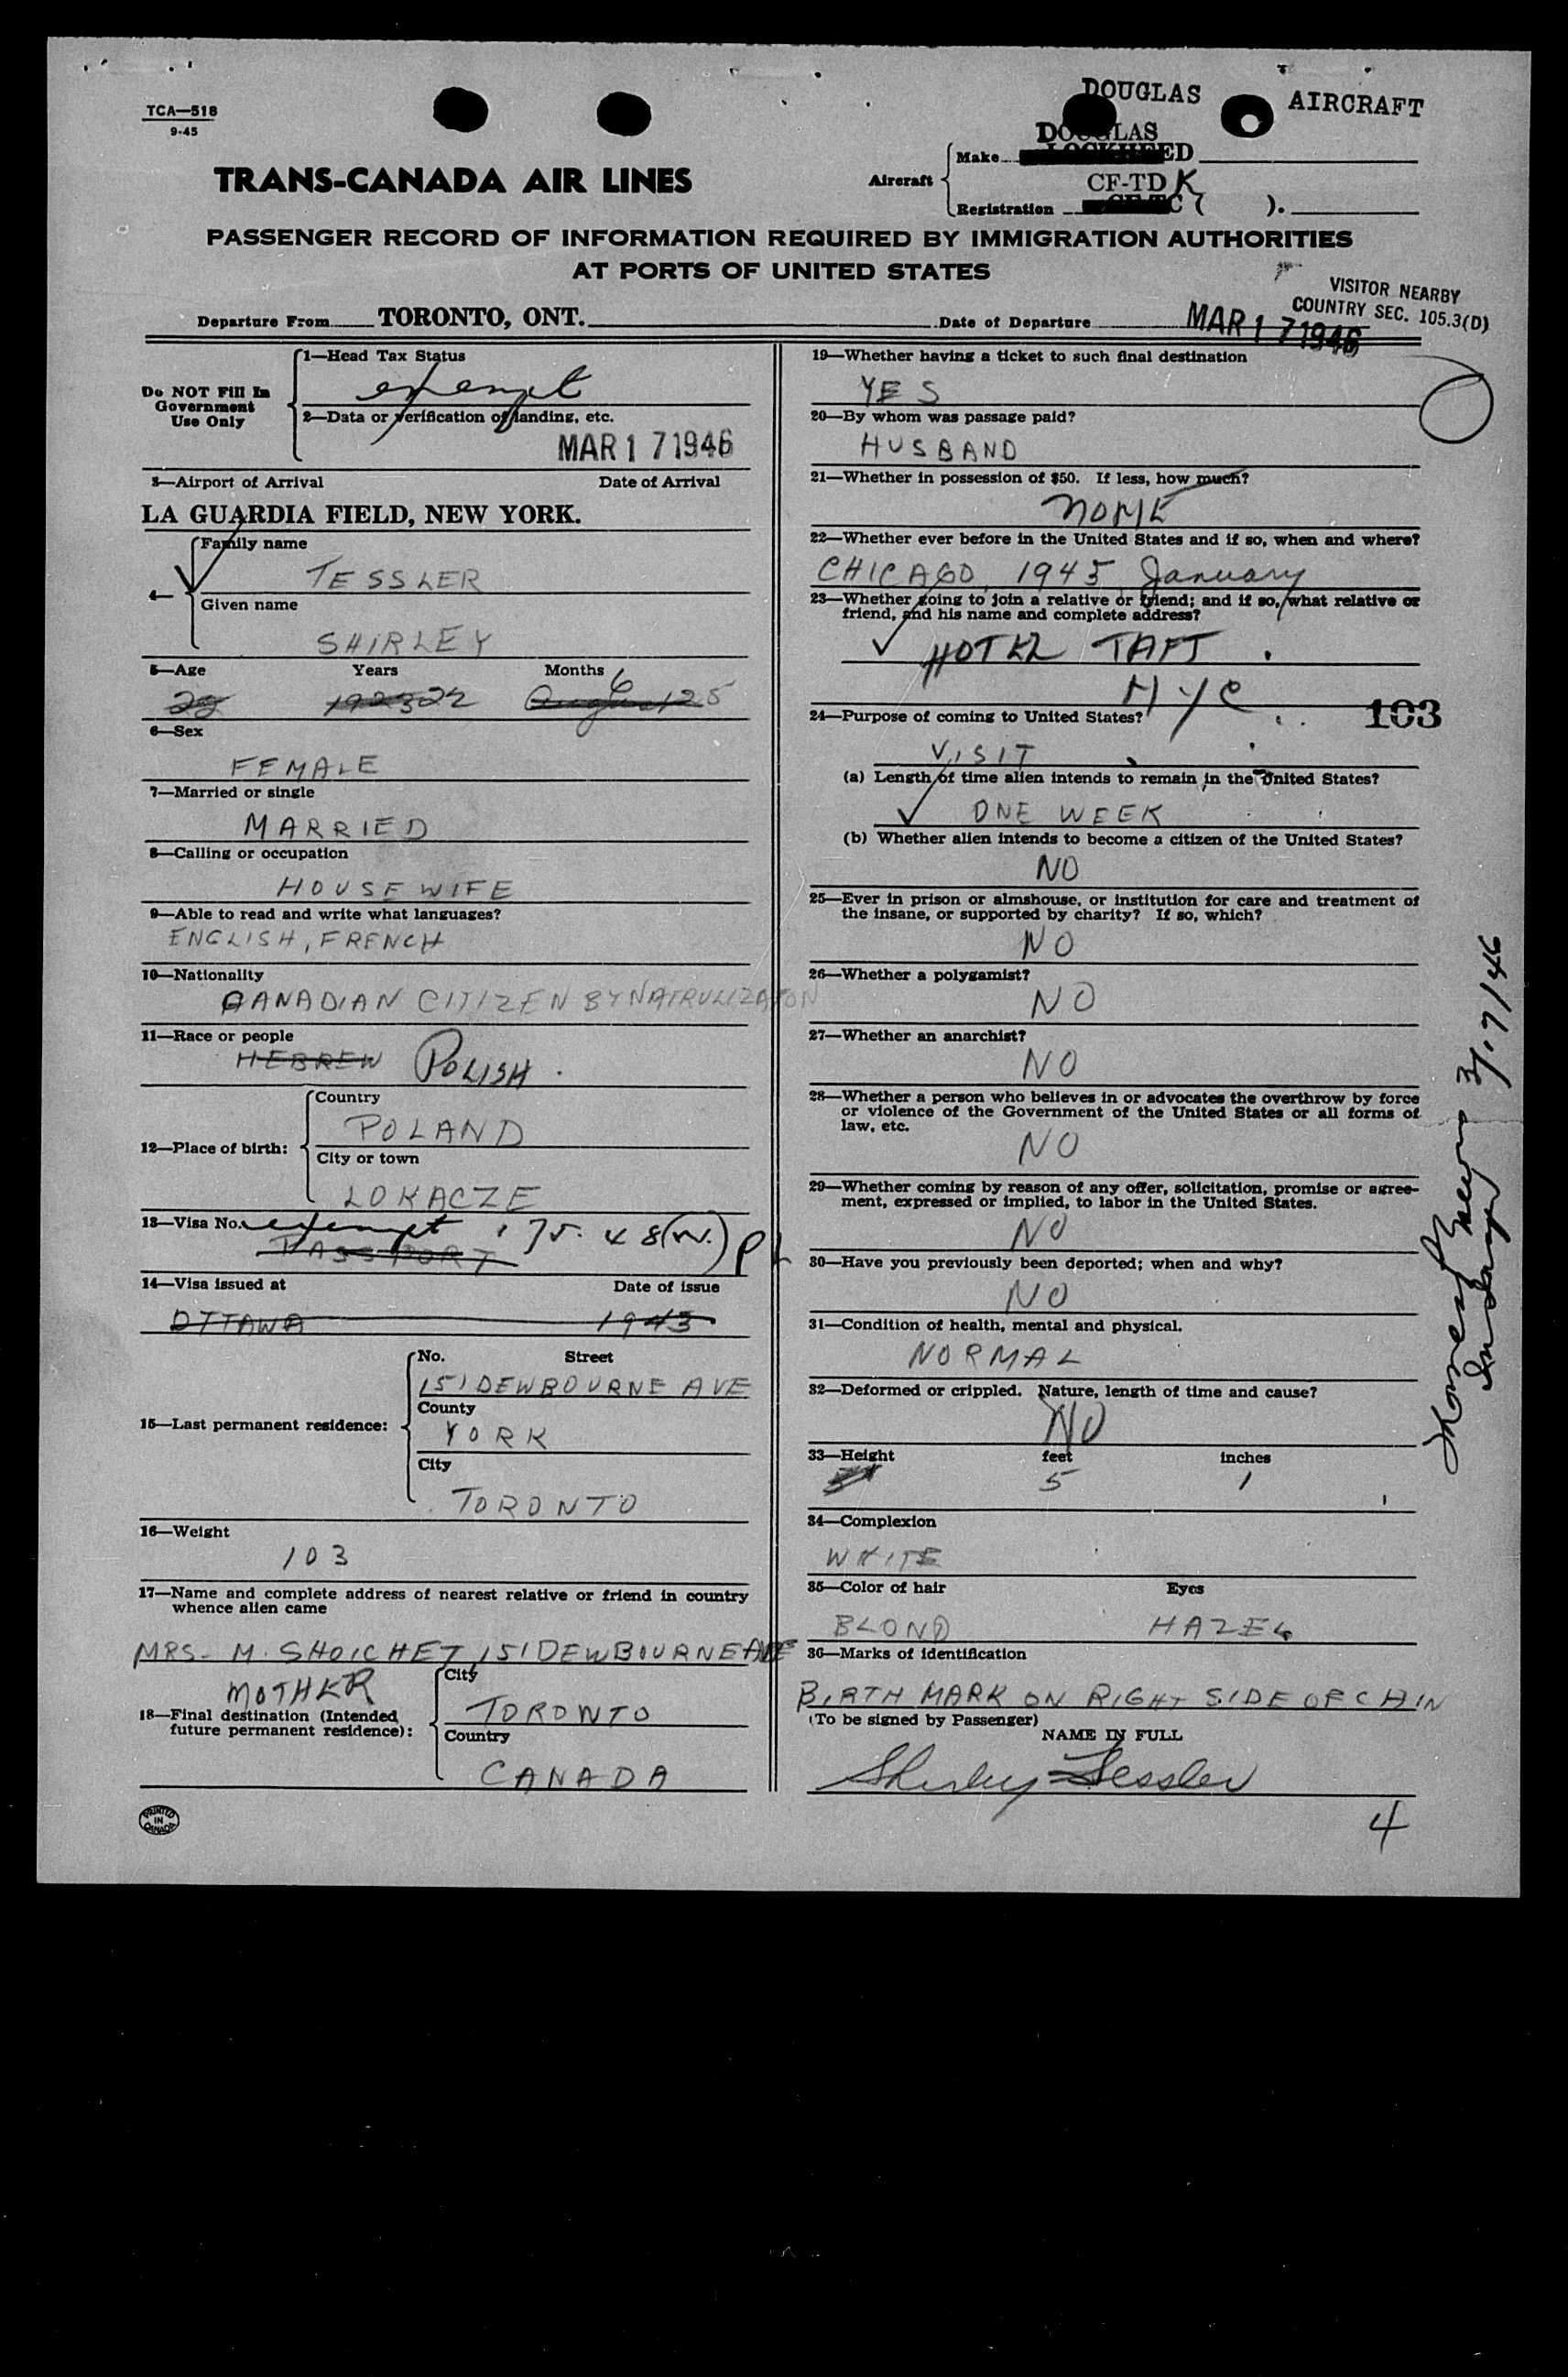 TCA—518
9-45
DOUGLAS AIRCRAFT
DOUGLAS
Make LOCKHEED
TRANS-CANADA AIR LINES
Aircraft
CF-TD K
Registration CF-TC ( ).
PASSENGER RECORD OF INFORMATION REQUIRED BY IMMIGRATION AUTHORITIES
AT PORTS OF UNITED STATES
VISITOR NEARBY
COUNTRY SEC. 105.3(D)
Departure From TORONTO, ONT. Date of Departure MAR 17 1946
Do NOT Fill In
Government
Use Only
1—Head Tax Status
exempt
2—Data or verification of landing, etc.
MAR 17 1946
3—Airport of Arrival Date of Arrival
LA GUARDIA FIELD, NEW YORK.
4—
Family name
TESSLER
Given name
SHIRLEY
5—Age Years Months
22 1923 22 August 25 6
6—Sex
FEMALE
7—Married or single
MARRIED
8—Calling or occupation
HOUSEWIFE
9—Able to read and write what languages?
ENGLISH, FRENCH
10—Nationality
CANADIAN CITIZEN BY NATRULIZATON
11—Race or people
HEBREW POLISH.
12—Place of birth:
Country
POLAND
City or town
LOKACZE
13—Visa No. exempt 175. 48(W.)
PASSPORT
14—Visa issued at Date of issue
OTTAWA 1943
15—Last permanent residence:
No. Street
151 DEWBOURNE AVE
County
YORK
City
TORONTO
16—Weight
103
17—Name and complete address of nearest relative or friend in country
whence alien came
MRS. M. SHOICHET, 151 DEWBOURNE AVE
MOTHER
18—Final destination (Intended
future permanent residence):
City
TORONTO
Country
CANADA
PRINTED
IN
CANADA
19—Whether having a ticket to such final destination
YES
20—By whom was passage paid?
HUSBAND
21—Whether in possession of $50. If less, how much?
NONE
22—Whether ever before in the United States and if so, when and where?
CHICAGO, 1945 January
23—Whether going to join a relative or friend; and if so, what relative or
friend, and his name and complete address?
HOTEL TAFT.
NYC
103
24—Purpose of coming to United States?
VISIT
(a) Length of time alien intends to remain in the United States?
ONE WEEK
(b) Whether alien intends to become a citizen of the United States?
NO
25—Ever in prison or almshouse, or institution for care and treatment of
the insane, or supported by charity? If so, which?
NO
26—Whether a polygamist?
NO
27—Whether an anarchist?
NO
28—Whether a person who believes in or advocates the overthrow by force
or violence of the Government of the United States or all forms of
law, etc.
NO
29—Whether coming by reason of any offer, solicitation, promise or agree-
ment, expressed or implied, to labor in the United States.
NO
30—Have you previously been deported; when and why?
NO
31—Condition of health, mental and physical.
NORMAL
32—Deformed or crippled. Nature, length of time and cause?
NO
33—Height feet inches
5 1
34—Complexion
WHITE
35—Color of hair Eyes
BLOND HAZEL
36—Marks of identification
BIRTH MARK ON RIGHT SIDE OF CHIN
(To be signed by Passenger)
NAME IN FULL
Shirley Tessler
4
3/17/46